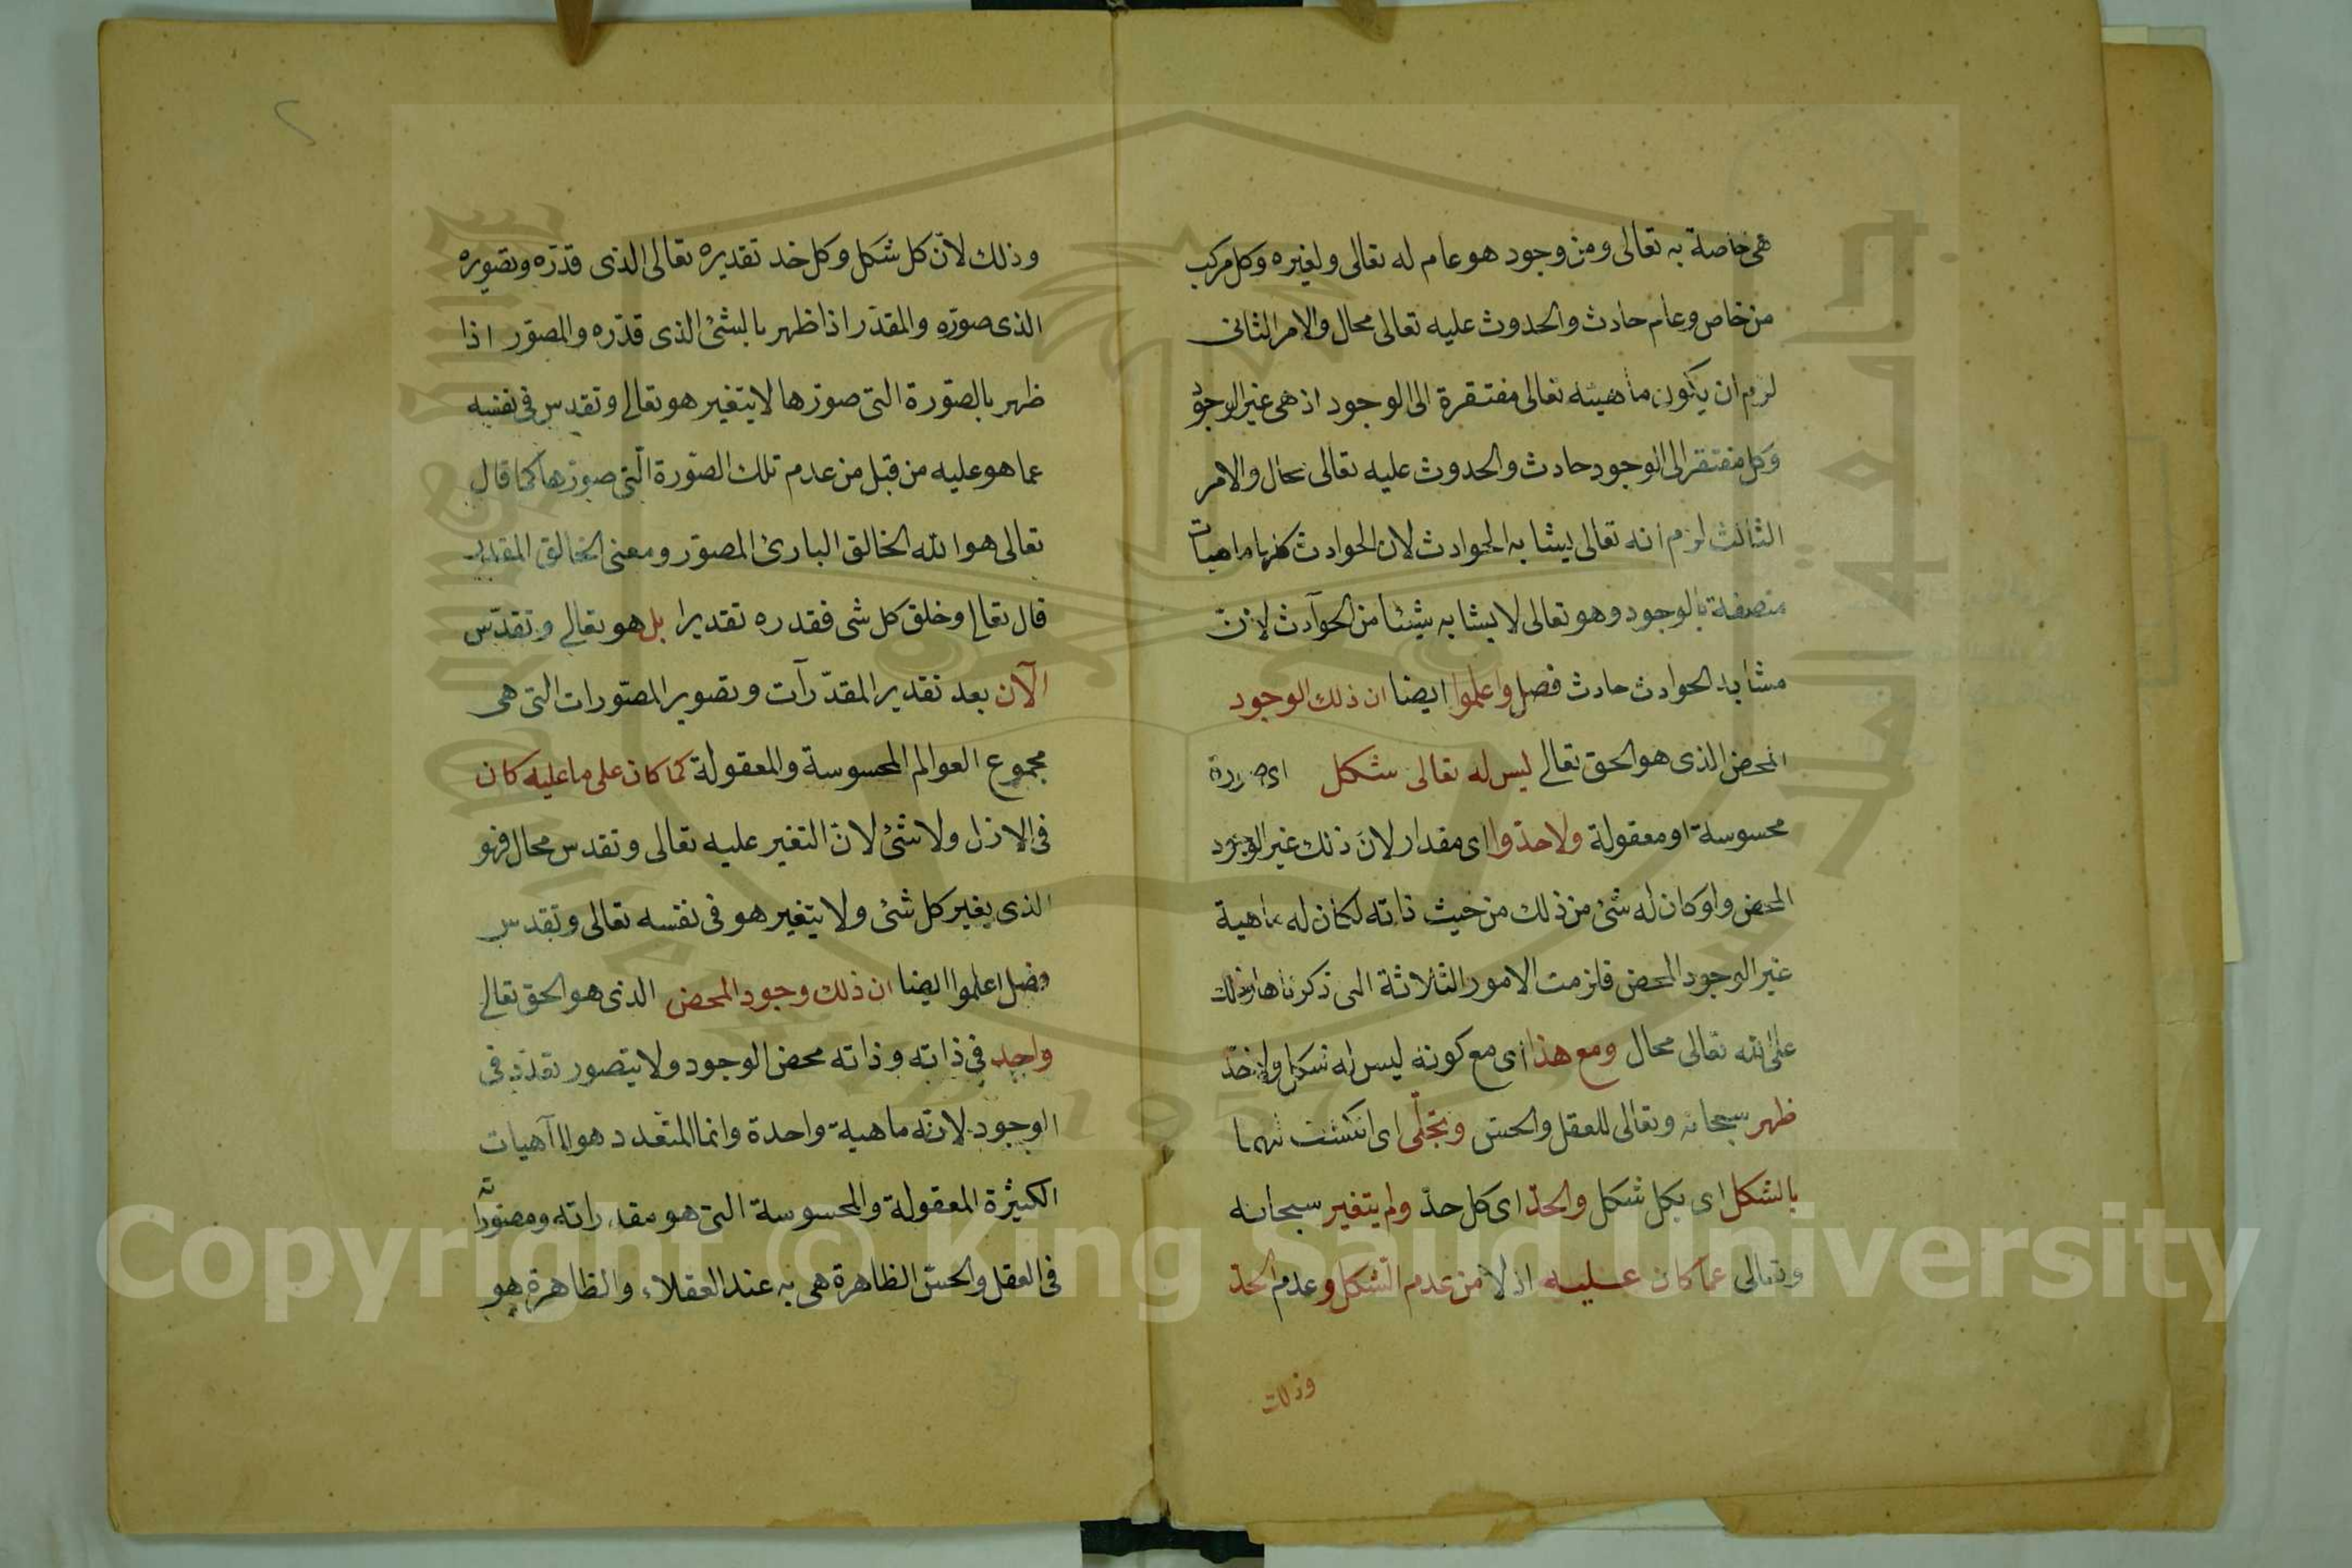 هي خاصة به تعالى ومن وجود هو عام له تعالى ولغيره وكل مركب
من خاص وعام حادث والحدوث عليه تعالى محال والامر الثانى
لزم ان يكون ماهيته تعالى مفتقرة الى الوجود اذ هى غير الوجود
وكل مفتقر الى الوجود حادث والحدوث عليه تعالى محال والامر
الثالث لزم انه تعالى يشابه الحوادث لان الحوادث كلها ماهيات
متصفة بالوجود وهو تعالى لا يشابه شيئا من الحوادث لان
مشابه الحوادث حادث فصل واعلموا ايضا ان ذلك الوجود
المحض الذى هو الحق تعالى ليس له تعالى شكل اى صورة
محسوسة او معقولة ولا حد اى مقدار لان ذلك غير الوجود
المحض ولو كان له شئ من ذلك من حيث ذاته لكان له ماهية
غير الوجود المحض فلزمت الامور الثلاثة التى ذكرناها وذلك
على الله تعالى محال ومع هذا اى مع كونه ليس له شكل ولا حد
ظهر سبحانه وتعالى للعقل والحس وتجلّى اى انكشف لهما
بالشكل اى بكل شكل والحدّ اى كل حدّ ولم يتغير سبحانه
وتعالى عما كان عليه ازلا من عدم الشكل وعدم الحدّ
وذلك
٢
وذلك لانّ كل شكل وكل حد تقديره تعالى الذى قدّره وتصويره
الذى صوّره والمقدّر اذا ظهر بالشئ الذى قدّره والمصوّر اذا
ظهر بالصّورة التى صوّرها لا يتغير هو تعالى وتقدس فى نفسه
عما هو عليه من قبل من عدم تلك الصّورة الّتى صوّرها كما قال
تعالى هو الله الخالق البارئ المصوّر ومعنى الخالق المقدر
قال تعالى وخلق كل شى فقدره تقديرا بل هو تعالى وتقدّس
الآن بعد تقدير المقدّرات وتصوير المصوّرات التى هى
مجموع العوالم المحسوسة والمعقولة كما كان على ما عليه كان
فى الازل ولا شئ لانّ التغير عليه تعالى وتقدس محال فهو
الذى يغير كل شئ ولا يتغير هو فى نفسه تعالى وتقدس
فصل اعلموا ايضا ان ذلك وجود المحض الذى هو الحق تعالى
واحد فى ذاته وذاته محض الوجود ولا يتصور تعدّد فى
الوجود لانه ماهية واحدة وانما المتعدد هو الماهيات
الكثيرة المعقولة والمحسوسة التى هو مقدراته ومصوّراته
فى العقل والحسّ الظاهرة هى به عند العقلاء والظاهرة هو
Copyright © King Saud University